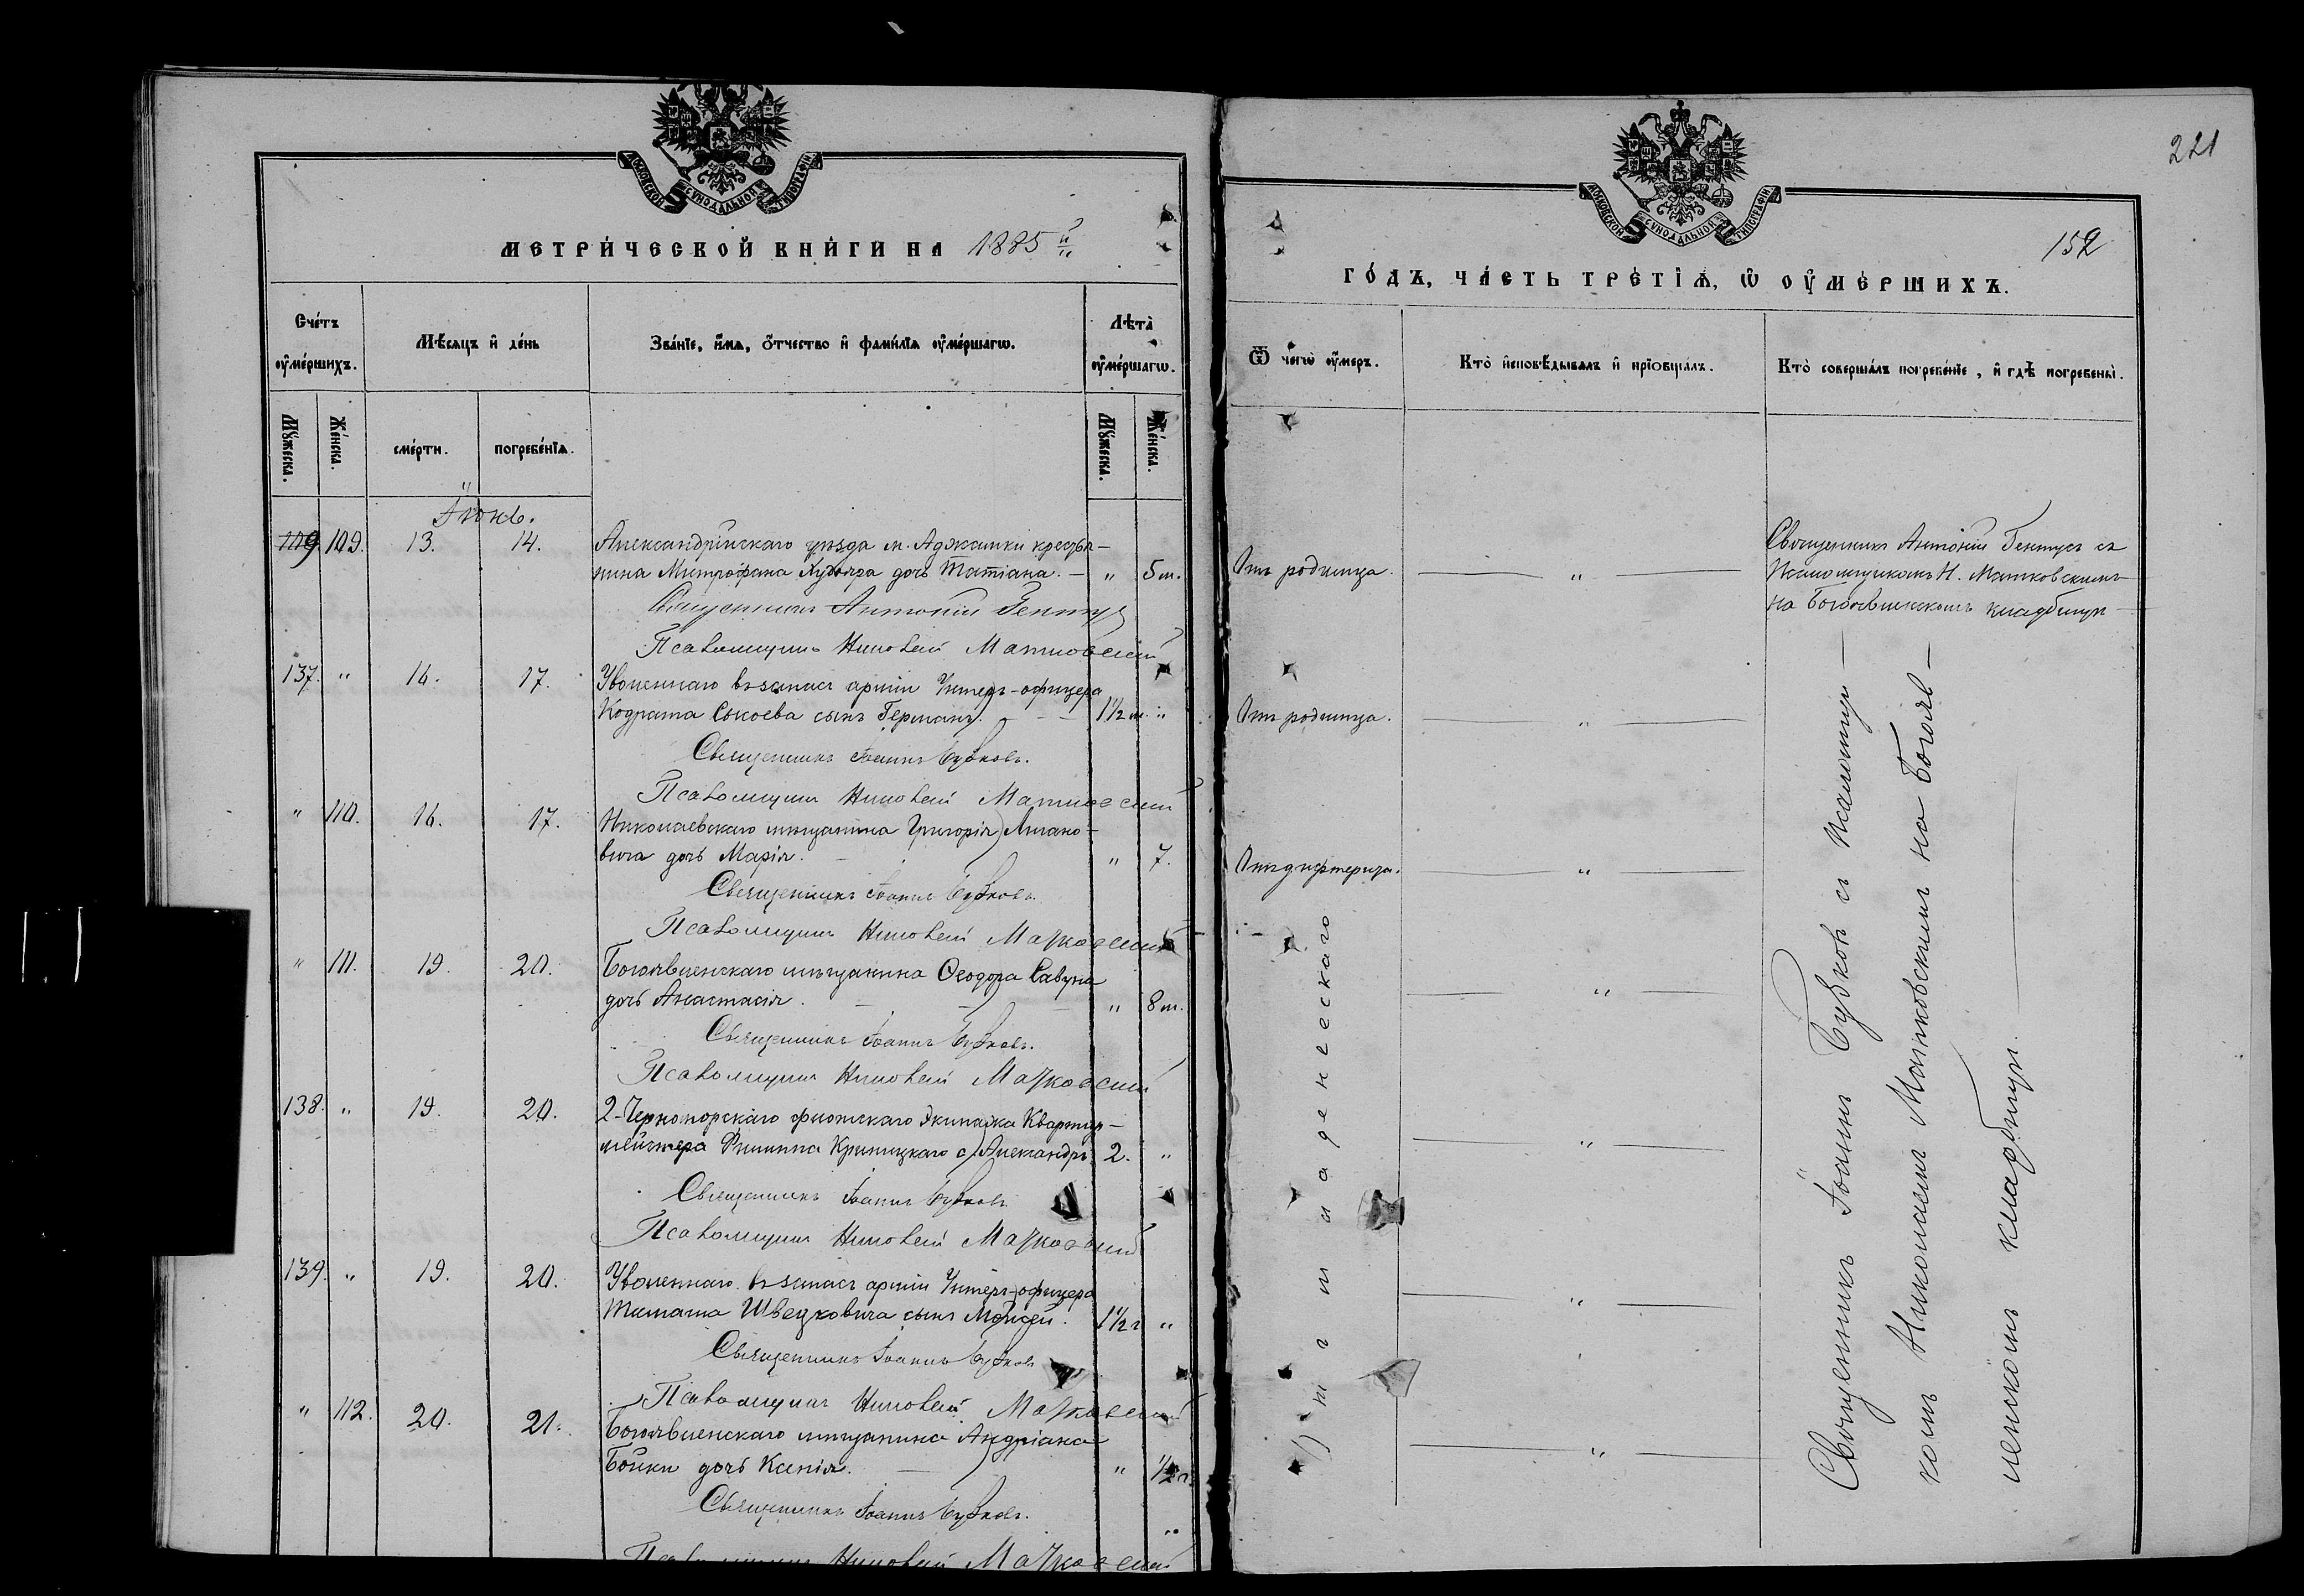 МОСКОВСКОЙ СУНОДАЛЬНОЙ ТИПОГРАФІИ
МЕТРИЧЕСКОЙ КНИГИ НА 1885й
Счетъ умершихъ.
Мѣсяцъ и день
Званіе, имя, отчество и фамилія умершаго.
Лѣта умершаго.
Мужеска.
Женска.
смерти.
погребенія.
Мужеска.
Женска.
Іюнь.
109 109. 13. 14. Александрійскаго уѣзда м. Аджамки крестья-
нина Митрофана Худояра дочь Татіана. — " 5 м.
Священникъ Антоній Гентуз
Псаломщикъ Николай Матковскій
137. " 16. 17. Уволеннаго въ запасъ арміи Унтеръ-офицера
Кодрата Сыкоева сынъ Германъ. — 1½ м. "
Священникъ Іоаннъ Бузковъ.
Псаломщикъ Николай Матковскій
" 110. 16. 17. Николаевскаго мѣщанина Григорія Лигано-
вича дочь Марія. — " 7.
Священникъ Іоаннъ Бузковъ.
Псаломщикъ Николай Матковскій
" 111. 19. 20. Богоявленскаго мѣщанина Ѳеодора Савуна
дочь Анастасія. — " 8 м.
Священникъ Іоаннъ Бузковъ.
Псаломщикъ Николай Матковскій
138. " 19. 20. 2-Черноморскаго флотскаго Экипажа Квартир-
мейстера Филиппа Криницкаго с. Александръ. 2. "
Священникъ Іоаннъ Бузковъ
Псаломщикъ Николай Матковскій
139. " 19. 20. Уволеннаго въ запасъ арміи Унтеръ-офицера
Швецковича сынъ Моисей. 1½ г "
Священникъ Іоаннъ Бузковъ
Псаломщикъ Николай Матковскій
" 112. 20. 21. Богоявленскаго мѣщанина Андріана
Бойки дочь Ксенія. — " ½ г.
Священникъ Іоаннъ Бузковъ.
Псаломщикъ Николай Матковскій
221
МОСКОВСКОЙ СУНОДАЛЬНОЙ ТИПОГРАФІИ
152
ГОДЪ, ЧАСТЬ ТРЕТІЯ, Ѡ УМЕРШИХЪ.
Ѿ чегѡ умеръ.
Кто исповѣдывалъ и пріобщалъ.
Кто совершалъ погребеніе, и гдѣ погребены.
Отъ родимца. — " —
Священникъ Антоній Гентусъ съ
Псаломщикомъ Н. Матковскимъ
на Богоявленскомъ кладбищѣ —
Отъ родимца. — " —
Отъ дифтерита. — " —
младенческаго
— " —
— " —
— " —
— " —
Священникъ Іоаннъ Бузковъ съ Псаломщи—
комъ Николаемъ Матковскимъ на Богояв—
ленскомъ кладбищѣ.